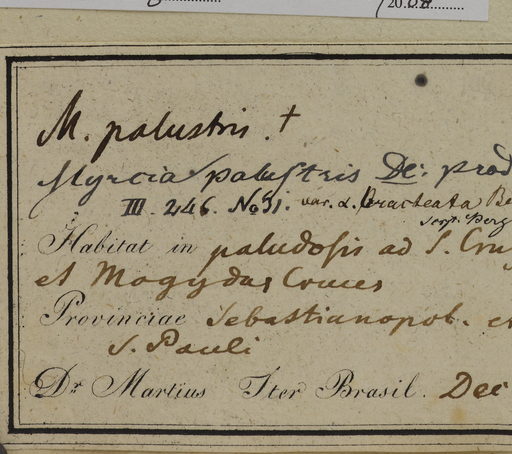 20.08
M. palustris. †
Myrcia palustris DC: prod
III. 246. No 31. var. α. bracteata Be
script. Berg
Habitat in paludosis ad S. Cru
et Mogy das Cruces
Provinciae Sebastianopol. et
S. Pauli
Dr Martius Iter Brasil. Dec